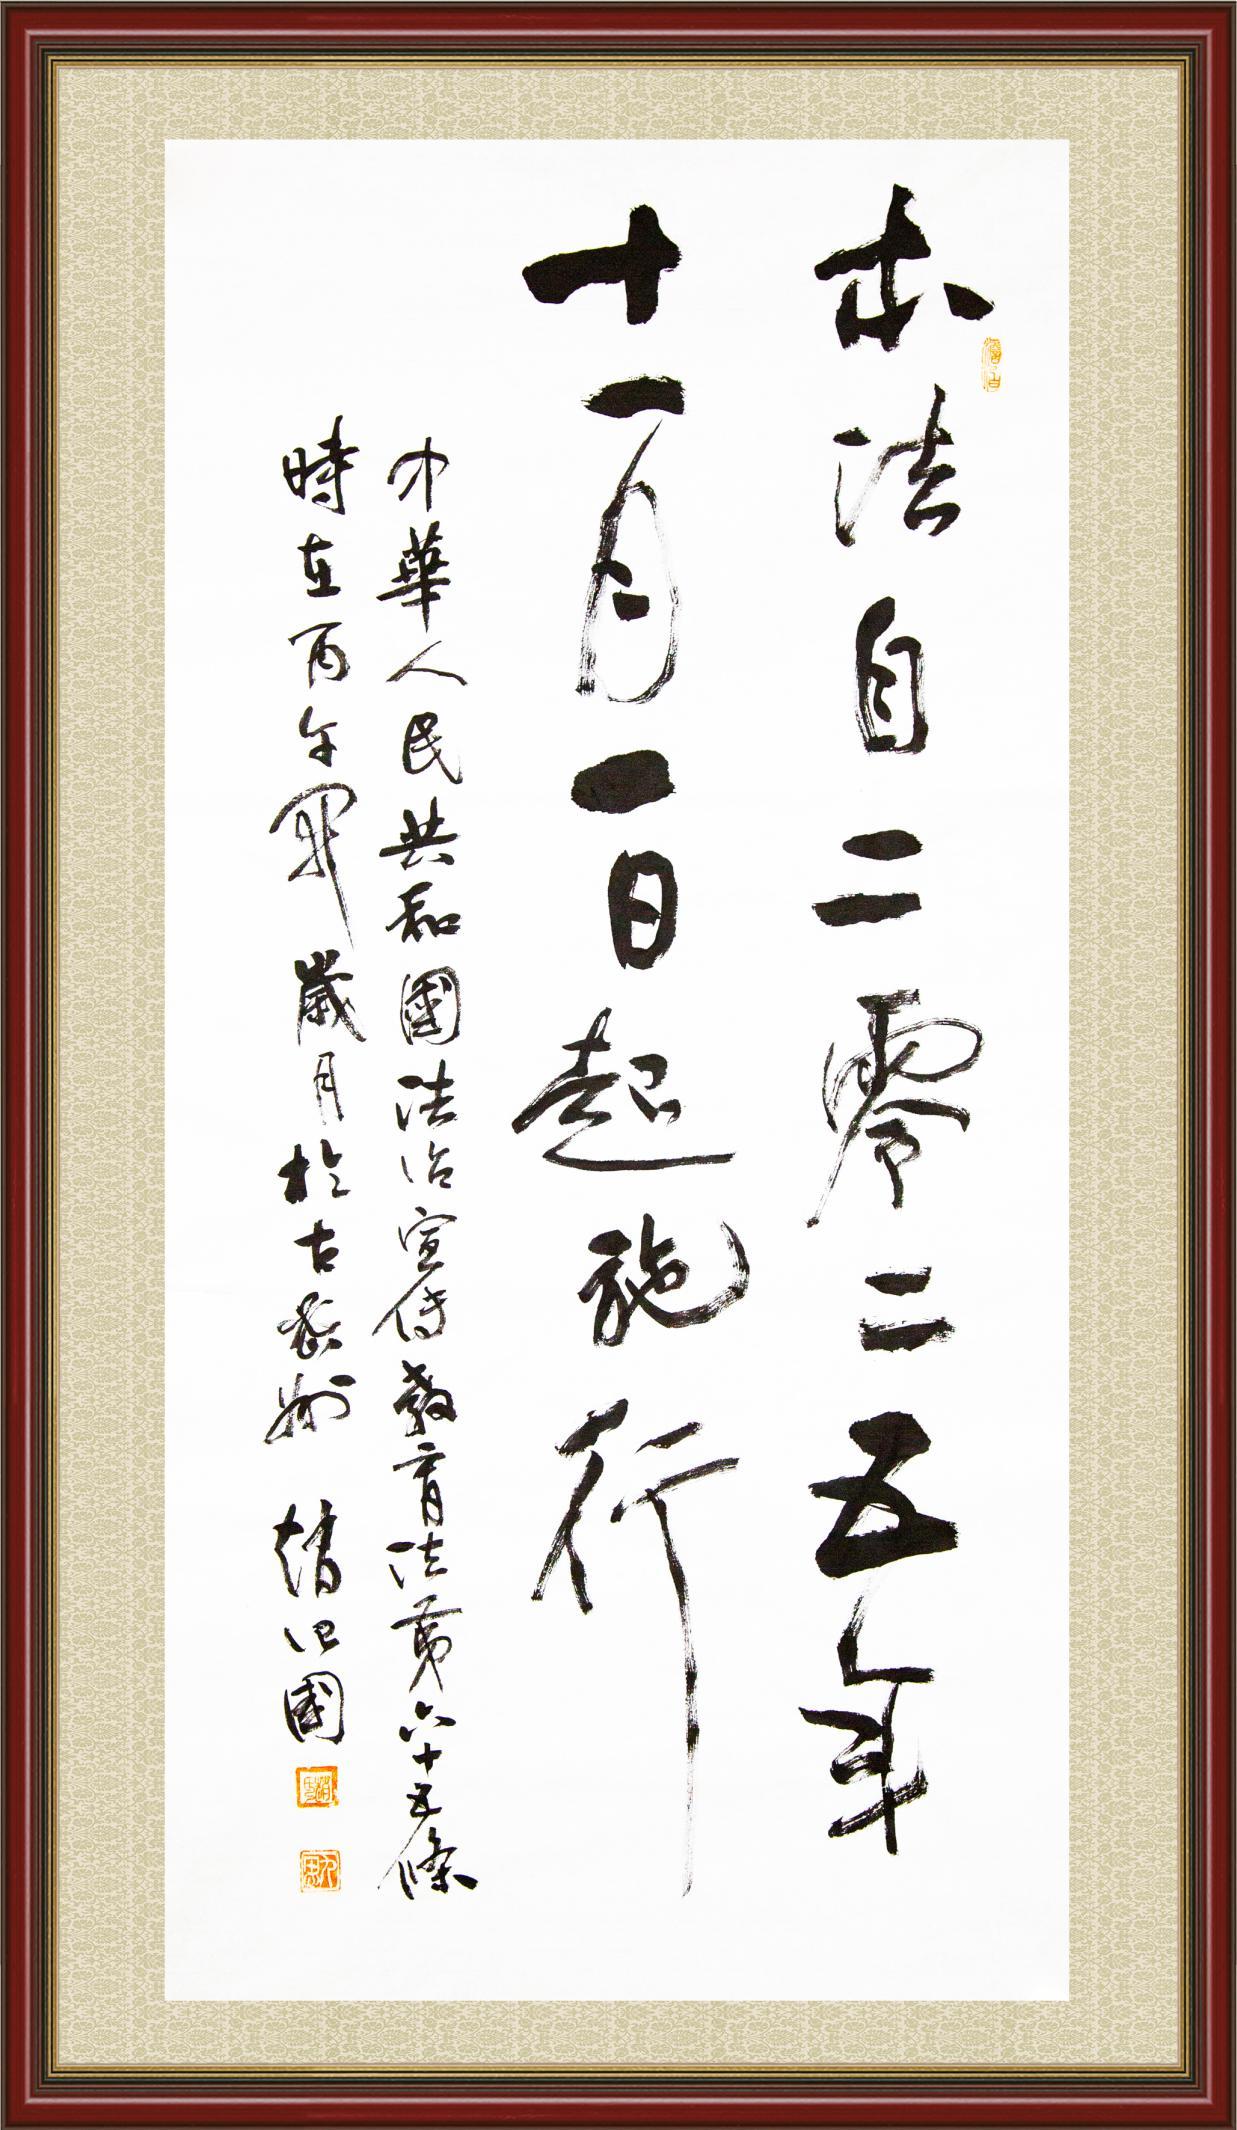 本法自二零二五年
十一月一日起施行
中華人民共和國法治宣传教育法第六十五條
時在丙午 歲月於古 州 趙 國